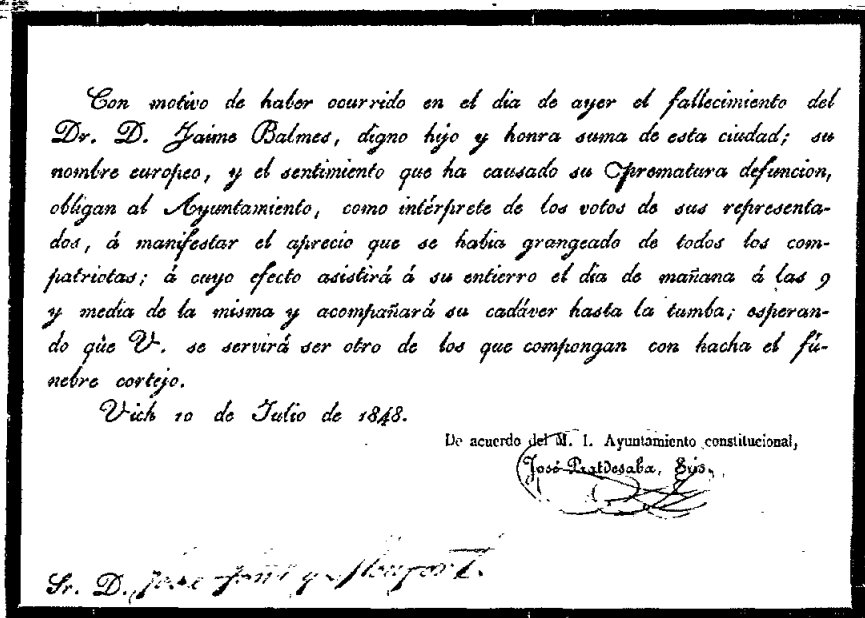 Con motivo de haber ocurrido en el dia de ayer el fallecimiento del
Dr. D. Jaime Balmes, digno hijo y honra suma de esta ciudad; su
nombre europeo, y el sentimiento que ha causado su prematura defuncion,
obligan al Ayuntamiento, como intérprete de los votos de sus representa-
dos, á manifestar el aprecio que se habia grangeado de todos los com-
patriotas; á cuyo efecto asistirá á su entierro el dia de mañana á las 9
y media de la misma y acompañará su cadáver hasta la tumba; esperan-
do que V. se servirá ser otro de los que compongan con hacha el fú-
nebre cortejo.
Vich 10 de Julio de 1848.
De acuerdo del M. I. Ayuntamiento constitucional,
José Pratdesaba, Srio.
Sr. D. Jose